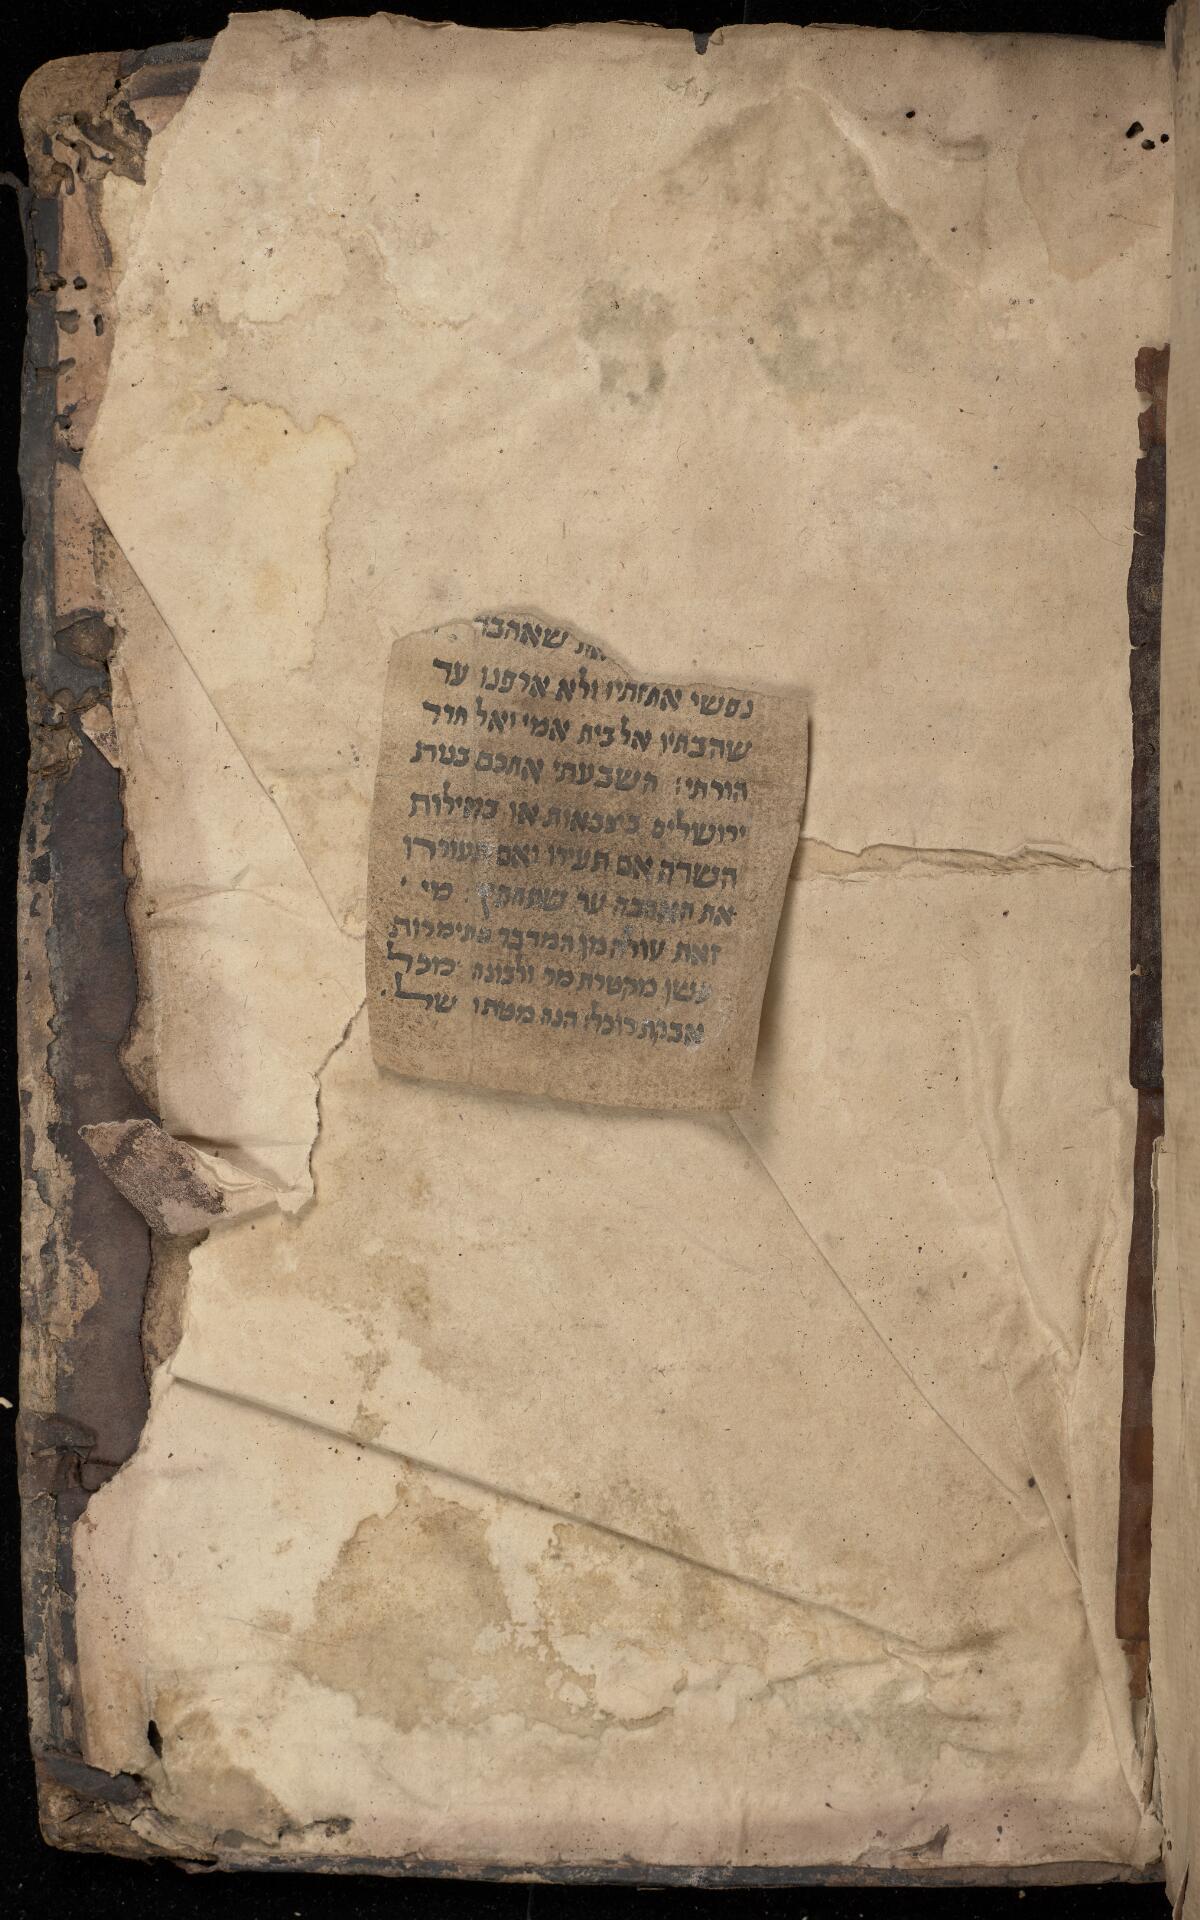 את שאהבה
נפשי אחזתיו ולא ארפנו עד
שהבתיו אל בית אמי ואל חדר
הורתי: השבעתי אתכם בנות
ירושלים בצבאות או באילות
השדה אם תעירו ואם תעוררו
את האהבה עד שתחפץ: מי
זאת עולה מן המדבר כתימרות
עשן מקטרת מר ולבונה מכל
אבקת רוכל: הנה מטתו של